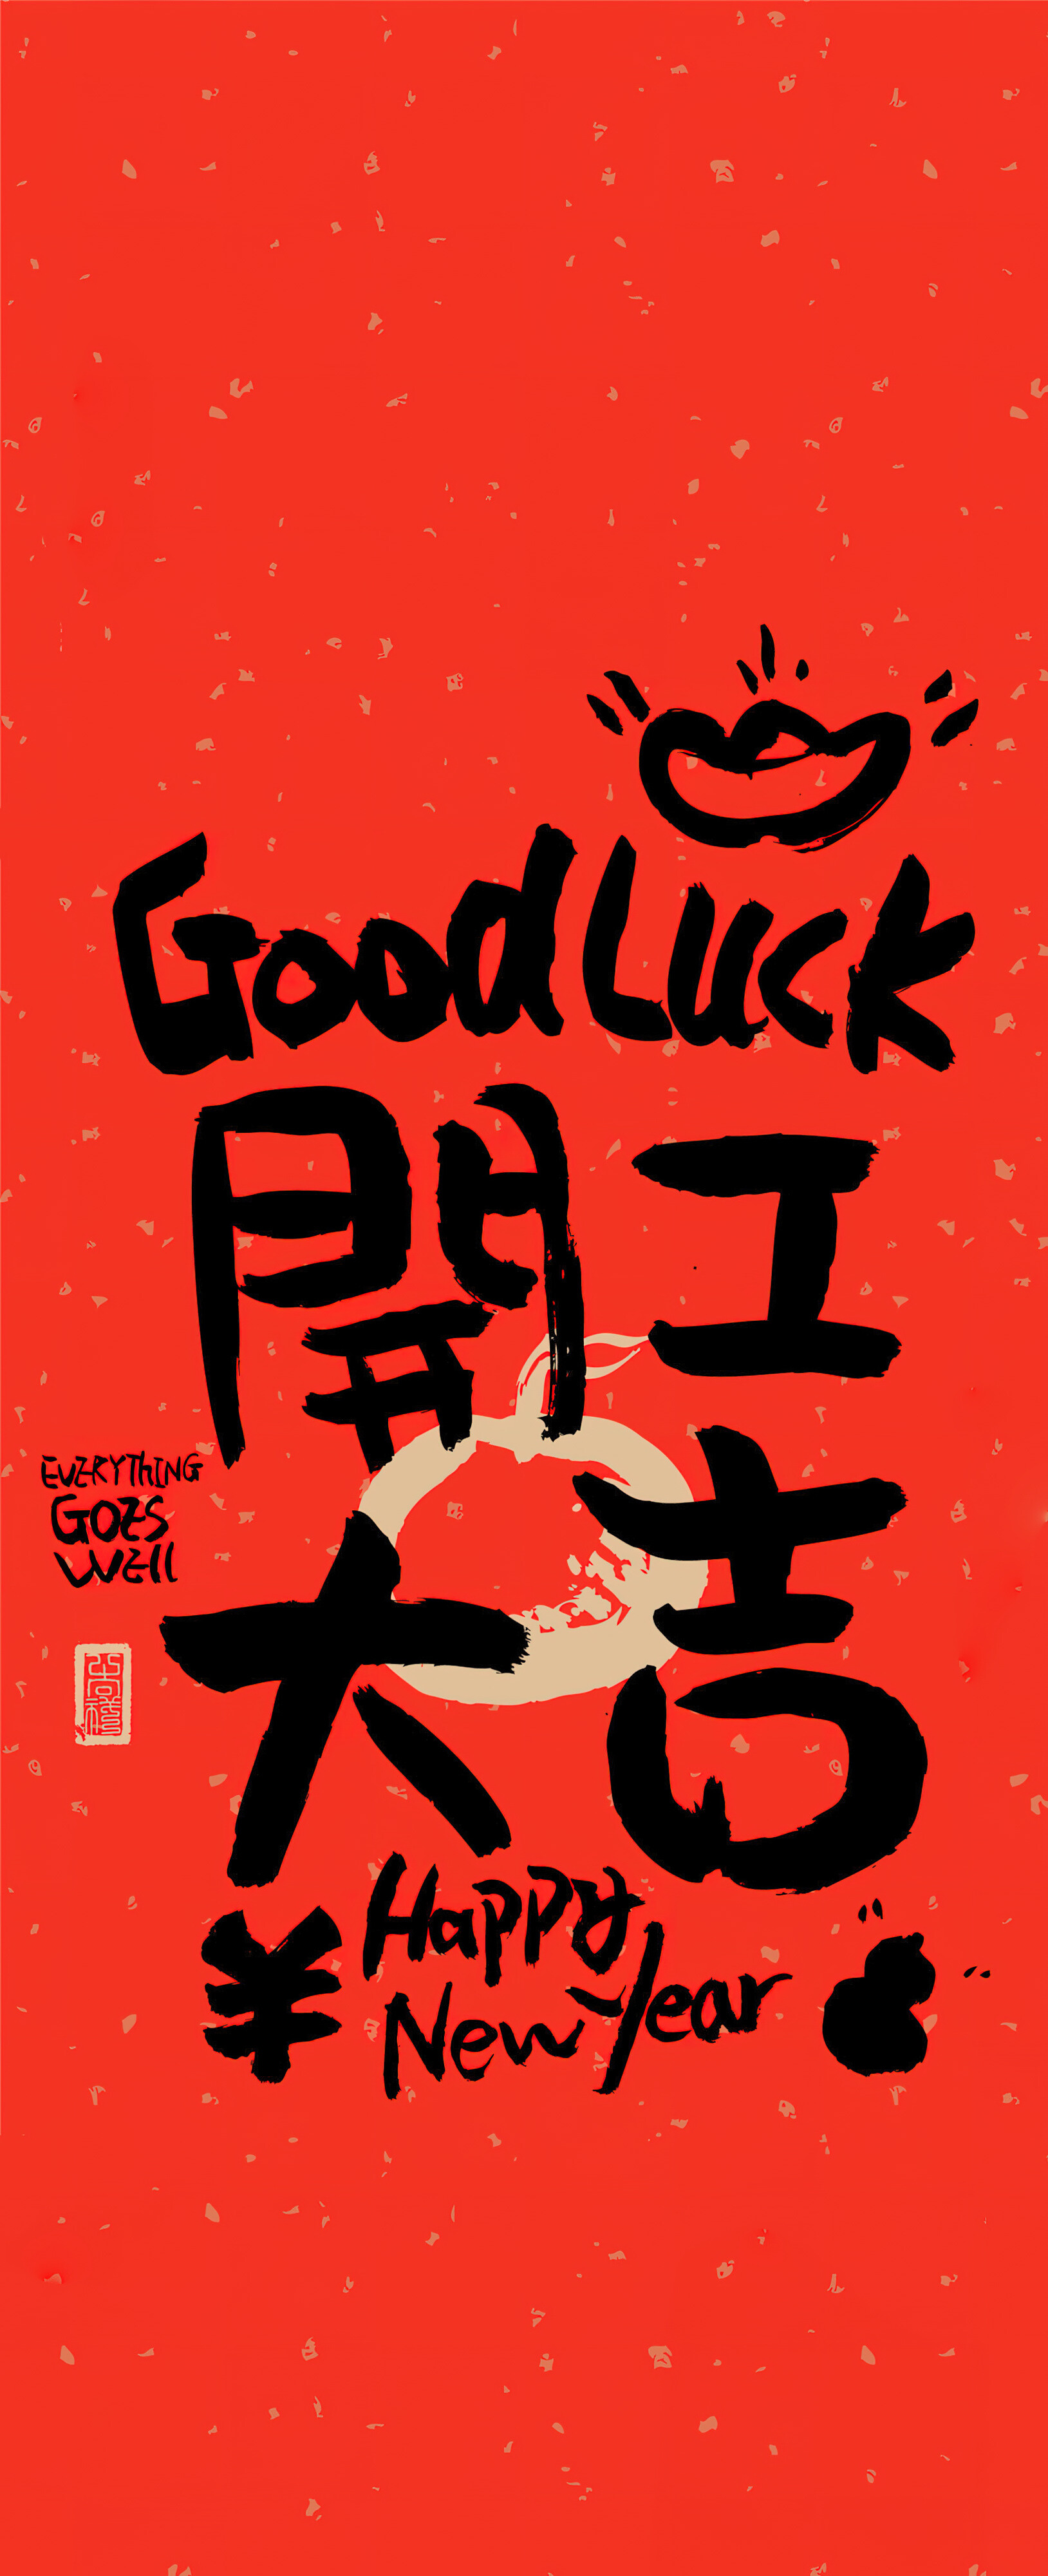 Good Luck
開工
大吉
EVERYThING
GOES
WEll
¥
Happy
New Year